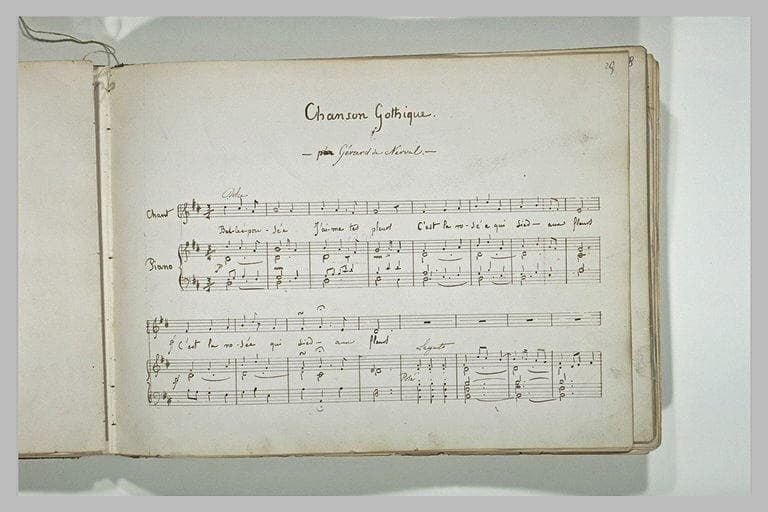 29 8
Chanson Gothique.
— Gérard de Nerval. —
Dolce
Chant
Bel-le épou-sée J'ai-me tes pleurs C'est la ro-sé-e qui sied- aux fleurs
Piano
P
C'est la ro-sée qui sied- aux fleurs
Legato